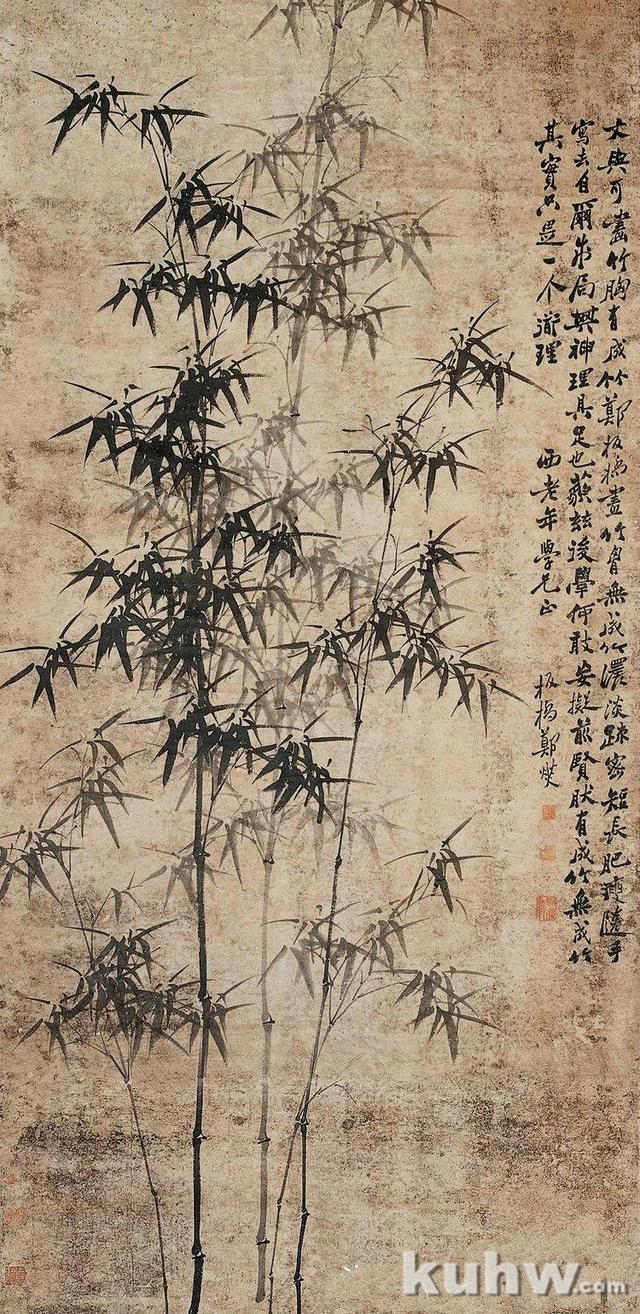 文與可畫竹胸有成竹鄭板橋畫竹胸無成竹濃淡疎密短長肥瘦隨手
寫去自爾成局其神理具足也藐茲後學何敢妄擬前賢肰有成竹無成竹
其實只是一个道理
酉老年學兄正
板橋鄭燮
kuhw.com